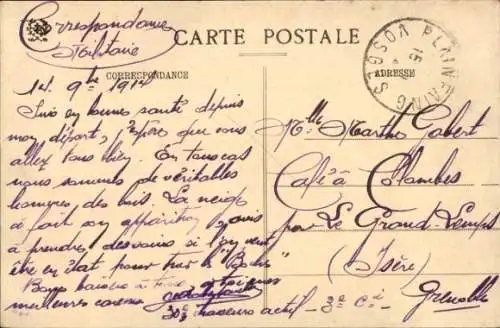 Correspondance
Militaire
CARTE POSTALE
CORRESPONDANCE
ADRESSE
PLAINFAING
VOSGES
14. 9bre 1914
Suis en bonne santé depuis
mon départ, j'espère que vous
allez tous bien. En tous cas
nous sommes de véritables
hommes des bois. La neige
a fait son apparition, avis
à prendre des soins si l'on veut
être en état pour tuer le "Boche"
Bons baisers à
meilleures
chasseurs actif - 3e Cie
Melle Marthe Gabert
Café à Colombes
par Le Grand Lemps
(Isère)
Grenoble